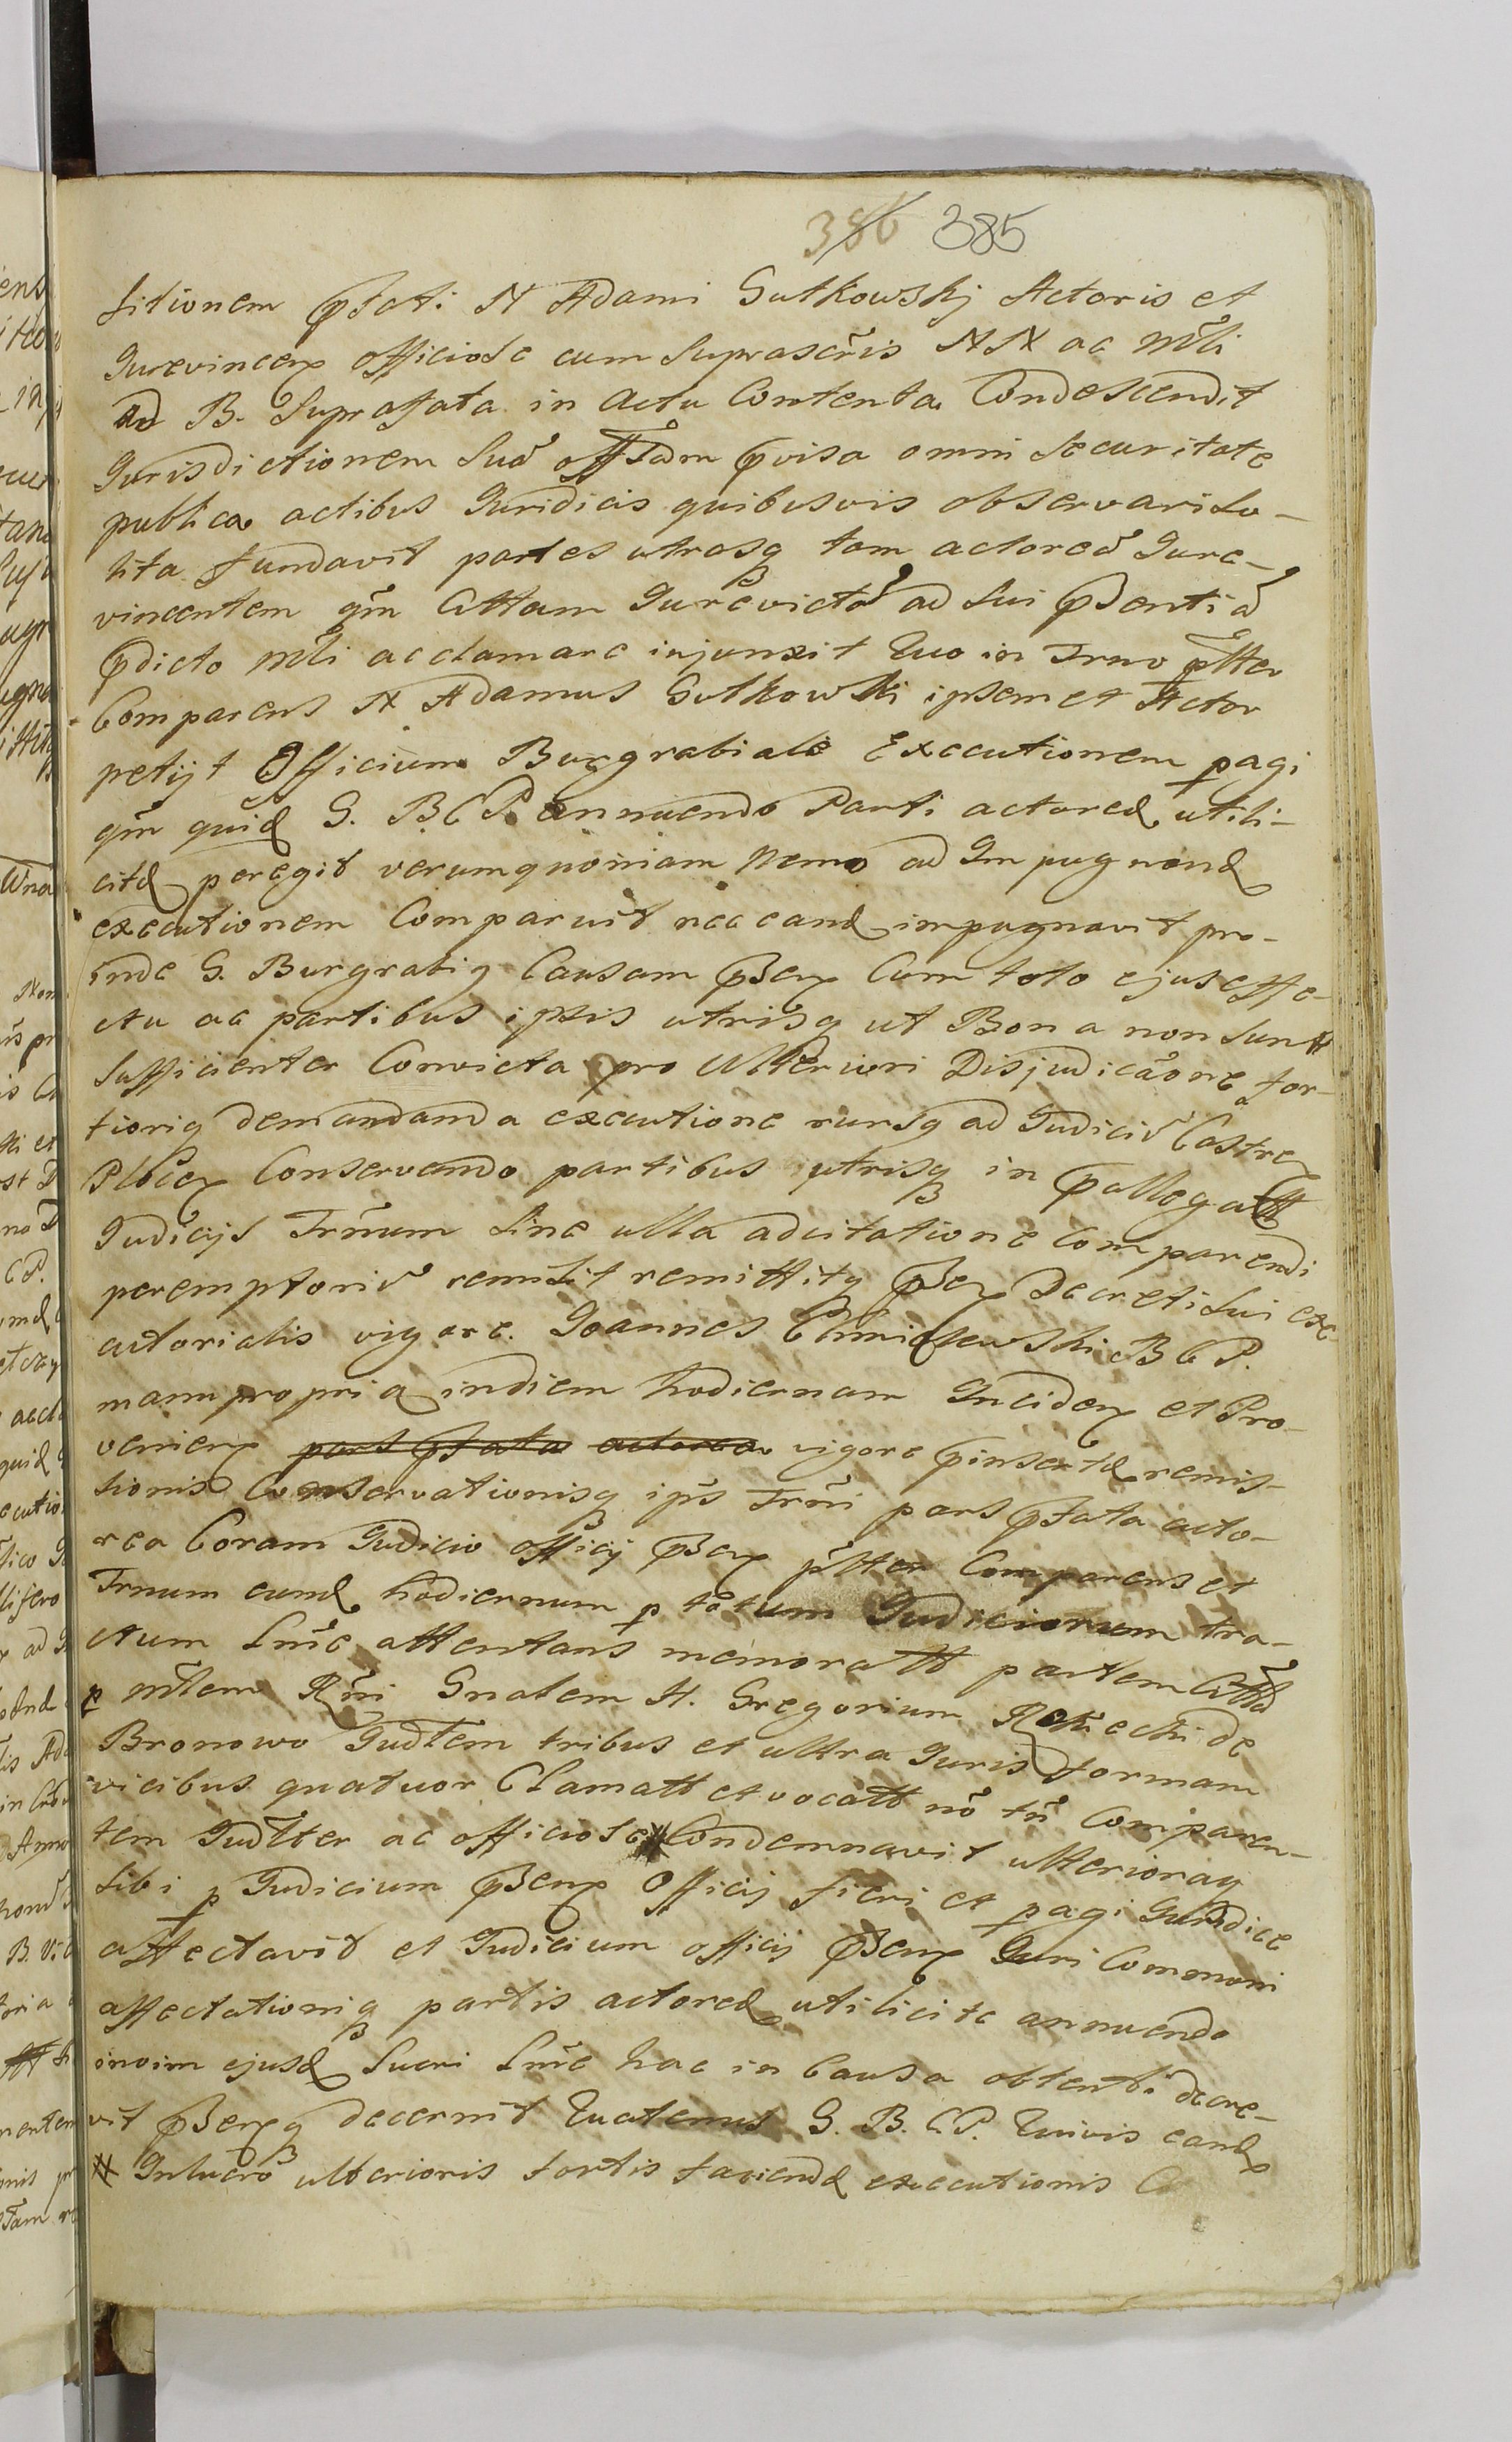 386 385
sitionem pfati N Adami Sutkowskj Actoris et
Jurevincen officiose cum suprascris NN ac Mli
Ad B. suprafata in actu Contenta Condescendit
Jurisdictionem suã offldm pvisa omni securitate
publica actibus Juridicis quibusvis observari so-
lita fundavit partes utrasq tam actoreã Jure-
vincentem qm Cittam Jurevictã ad sui psentiã
pdicto Mli acclamare injunxit Quo in Trno pltter
Comparens N Adamus Sutkowski ipsemet Actor
petijt Officium Burgrabiale Executionem pagi
qm quid G. B C P. annuendo Parti actored utili-
citd peregit verumquoniam nemo ad Impugnand
executionem Comparuit nec eand impugnavit pro-
inde G. Burgrabig Causam psen Cum toto ejus effe-
ctu ac partibus ipsis utrisq ut Bona non sunt
sufficienter Convicta pro Ulteriori Disjudicãone for-
tiorig demandanda executione rursq ad Judiciũ Castren
Plocen Conservando partibus utrisq in pallegatt
Judicijs Trnum sine ulla adcitatione Comparendi
peremptoriũ remisit remittitq psen Decreti sui exe-
cutorialis vigore. Joannes Chmielewski B C P.
manu propria indiem hodiernam Inciden et Pro-
venien pars pfata actorea vigore pinsertd remis-
sionis Conservationisq ips Trni pars pfata acto-
rea Coram Judicio officij psen pltter Comparens et
Trnum eund hodiernum p totum Judiciorum tra-
ctum lme attentans memoratt partem Cittã
e mltem Rni Gnalem H. Gregorium de
Bronowo Judtem tribus et ultra Juris formam
vicibus quatuor Clamatt et vocatt nõ tñ Comparen-
tem Judlter ac officiose # Condemnavit ulterioraq
sibi p Judicium psen Officij fieri et pagi Juridice
affectavit et Judicium officij psen Juri Communi
affectationiq partis actored utilicite annuendo
invim ejusd lucri lme hac in Causa obtenti decre-
vit psenq decernit Quatenus G. B. C P. Quivis eand
# Inlucro ulterioris fortis faciendd executionis